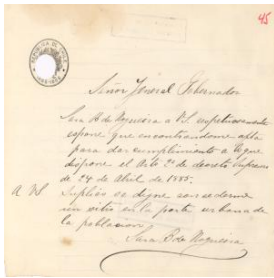 45
Señor Jeneral Gobernador
Sara B de Noguera a VS. respetuosamente
espone que encontrandome apta
para dar cumplimiento a lo que
dispone el Arto 2º de decreto Supremo
de 24 de Abril de 1885.
A VS. Suplico se digne concederme
un sitio en la parte urbana de
la poblacion
Sara B de Noguera